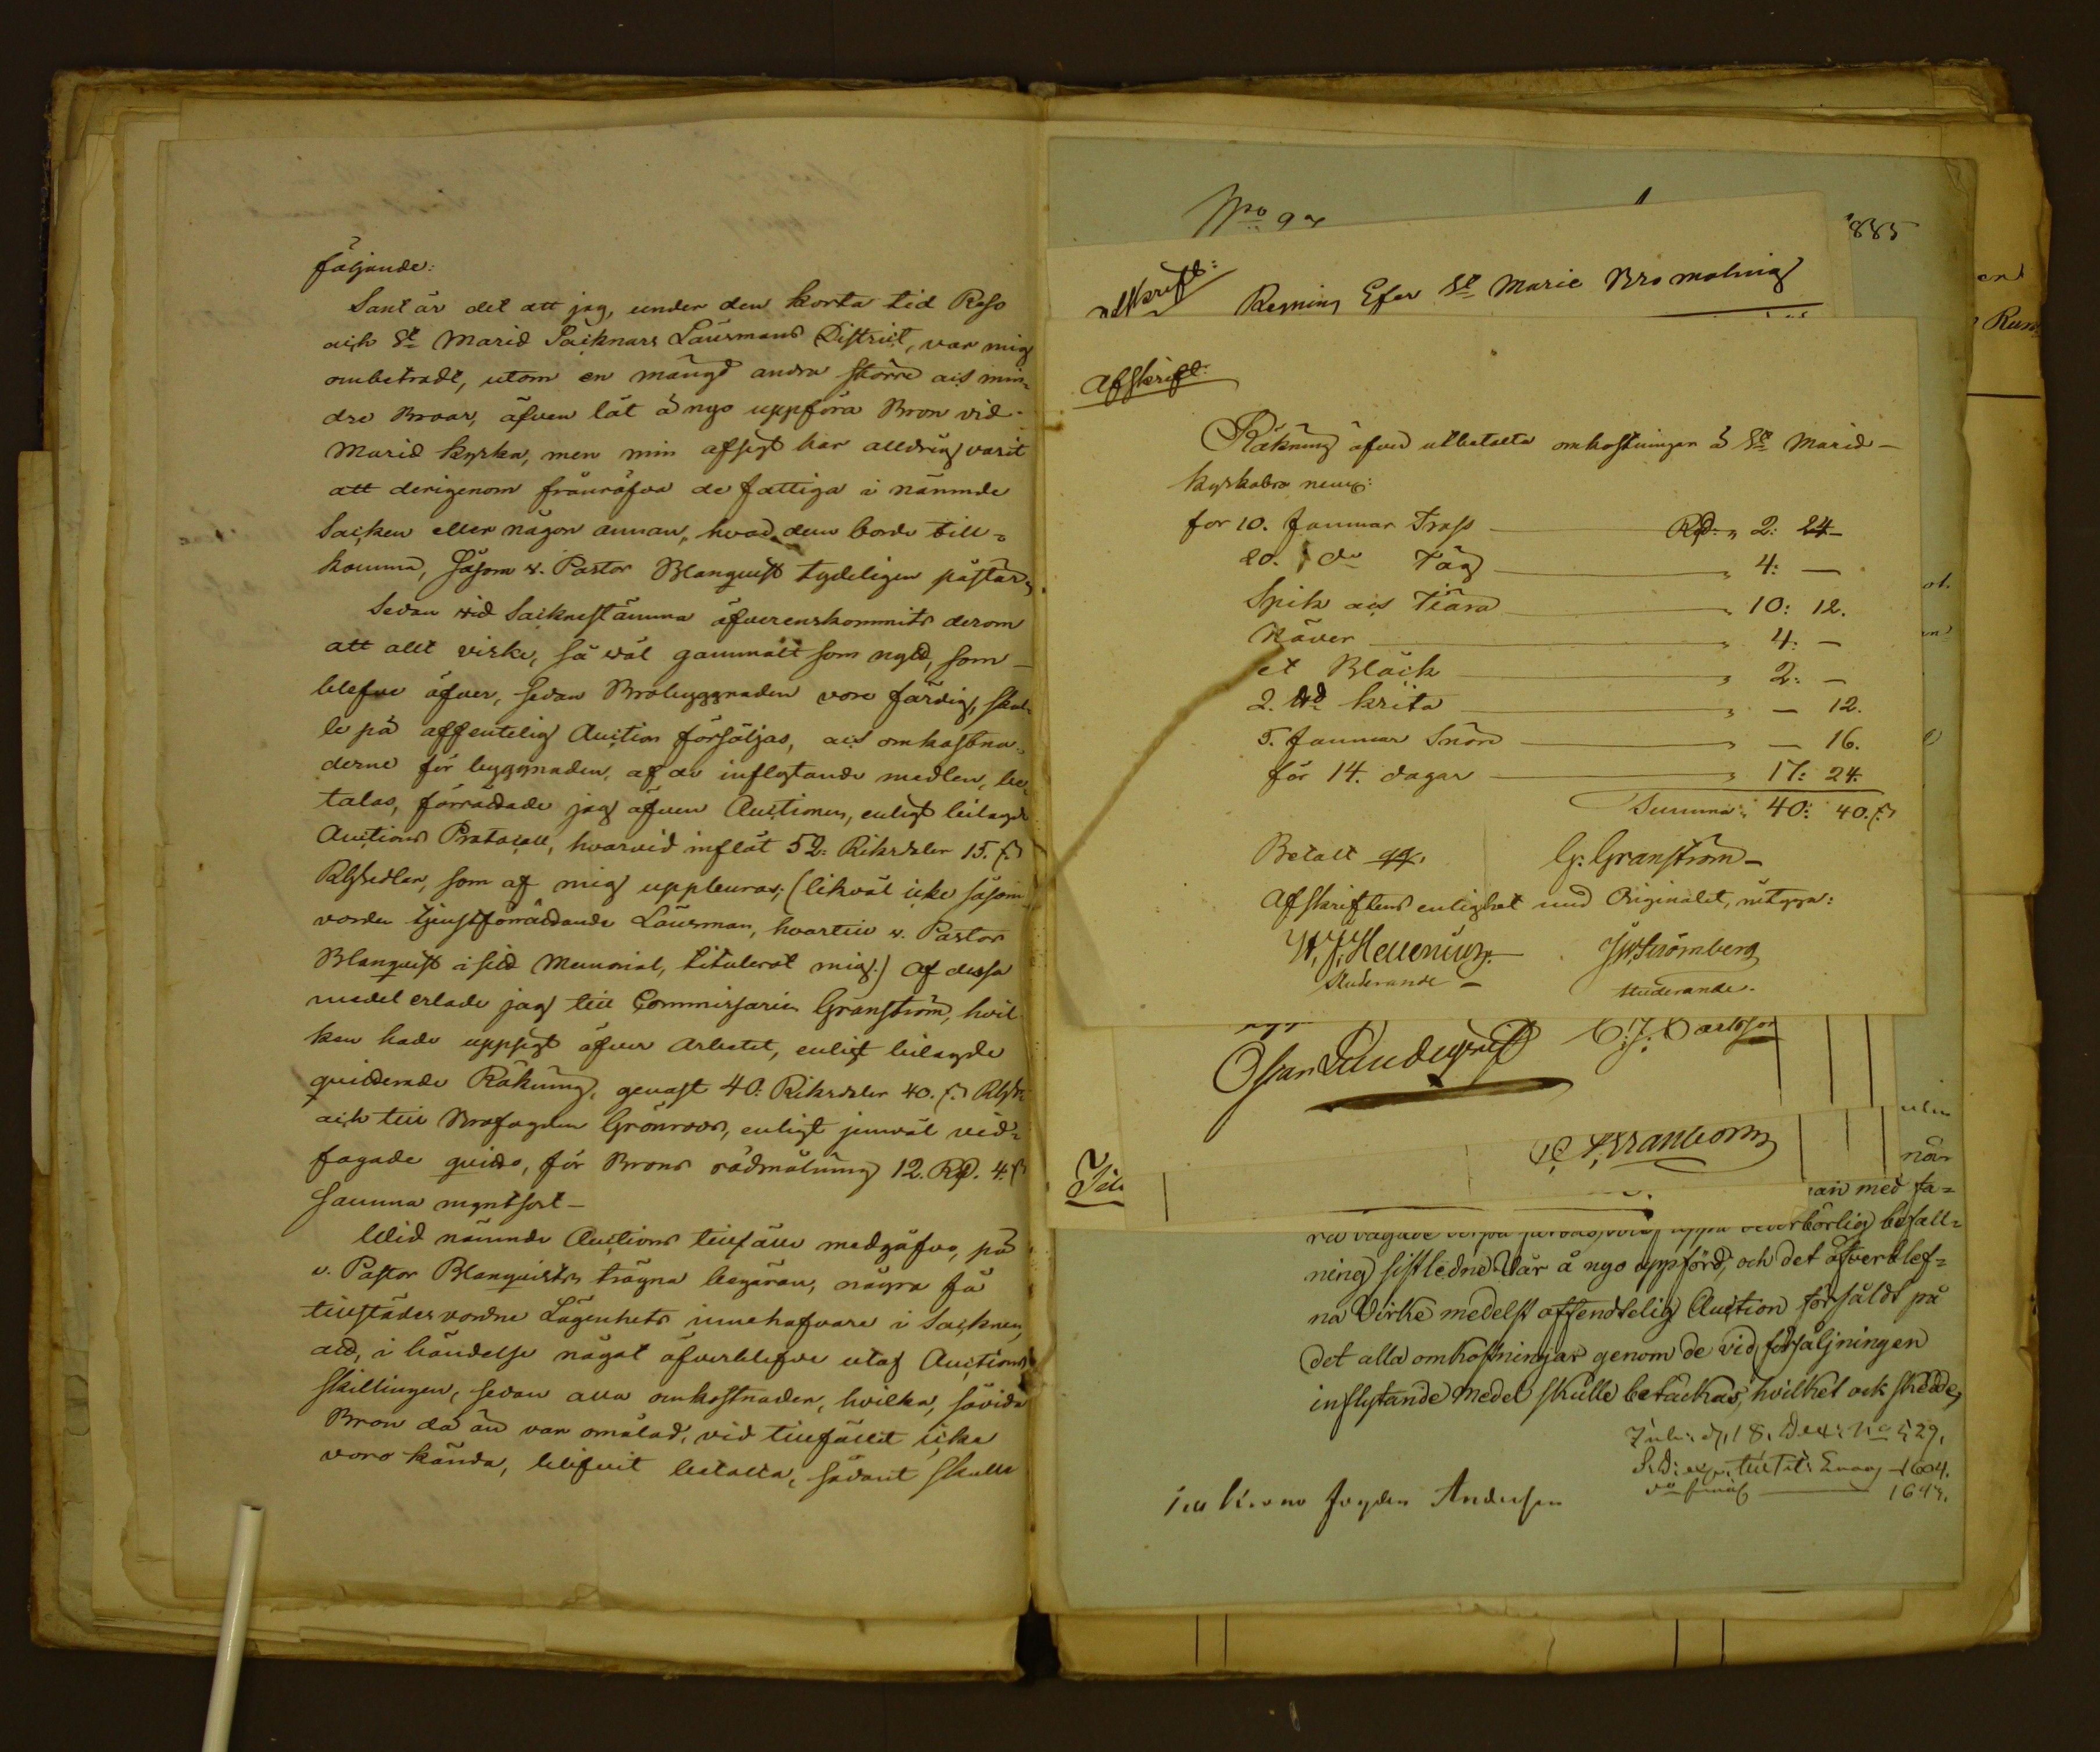 följande:
Sant är det att jag, under den korta tid Reso
och S:t Marie Sócknars Länsmans District, var mig
ombetrodt, utom en mängd andra större och min-
dre Broar, äfven lät å nyo uppföra Bron vid
Marie kyrka, men min afsigt har alldrig varit
att derigenom frånröfva de fattiga i nämnde
Socken eller någon annan, hvad dem borde till-
komma, såsom v. Pastor Blanquist tydeligen påstår,
Sedan vid Sócknestämma öfverenskommits derom
att allt virke, så väl gammalt som nytt, som
blefve öfver, sedan Brobyggnaden vore färdig, skul-
le på offentelig Auction försäljas, och omkostna-
derne för byggnaden, af de inflytande medlen, be-
talas, förrättade jag äfven Auctionen, enligt bilagde
Auctions Protocoll, hvarvid inflöt 52: Riksdaler 15. s:
Rgssedlar, som af mig uppburos; (likväl icke såsom
vorden tjenstförrättande Länsman, hvartill v. Pastor
Blanquist i sitt Memorial, titulerat mig.) Af dessa
medel erlade jag till Commissarien Granström, hvil-
ken hade uppsigt öfver arbetet, enligt bilagde
quitterade Räkning, genast 40: Riksdaler 40. s: Rgs
och till Brofogden Grönroos, enligt jemväl vid-
fogade quitto, för Brons rödmålning 12. Rd. 4. s
samma myntsort –
Wid nämnde Auctions tillfälle medgåfvo, på
v. Pastor Blanquists trägna begäran, några få
tillstädes vordne Lägenhets innehafvare i Socknen,
att, i händelse något öfverblefve utaf Auctions
skillingen, sedan alla omkostnader, hvilka, såvida
Bron då än var omålad, vid tillfället icke
voro kända, blifvit betalta, sådant skulle
N:o 97
1835
Afskrift:
Regning Efver S:t Marie Bro molning
Afskrift:
Räkning öfver utbetalta omkostningar å S:t Marie
kyrkobro nemn:
för 10. famnar Tross — Rd: „ 2: 24
20. d:o Tåg — „ 4: —
Spik och Tiära — „ 10: 12.
Näver — „ 4: —
et Bläck — „ 2: —
2. ℔ krita — „ — 12.
5. famnar Snöre — „ — 16.
för 14. dagar — „ 17: 24.
Summa: 40: 40. s:
Betalt qq. G: Granström –
Afskriftens enlighet med Originalet, vittyga:
W. J. Hellenius. J W Strömberg
Studerande – Studerande.
Oskar Lindeqvist C: J: Carlsson
Till
an med fa-
vederbörlig befall-
ning sistledne Vår å nyo uppförd, och det öfverblef-
na Virke medelst offendtelig Auction försåldt på
det alla omkostningar genom de vid försäljningen
inflytande medel skulle betäckas; hvilket ock skedde,
N:o 529,
1604.
1647.
Till Krono fogden Andersson